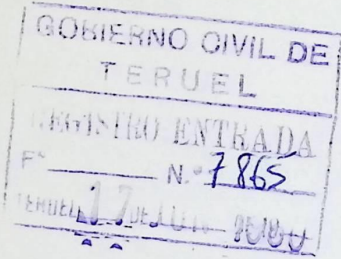 GOBIERNO CIVIL DE
TERUEL
REGISTRO ENTRADA
Fº N.º 7865
TERUEL 17 DE